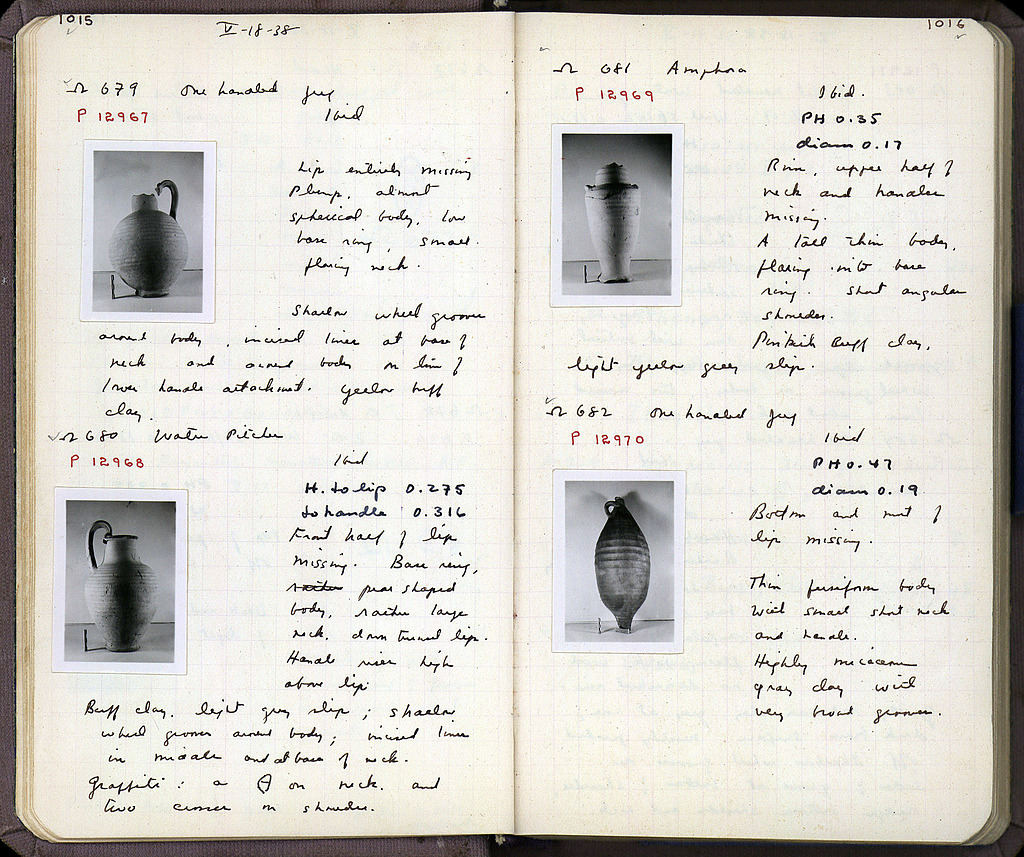 1015
V-18-38
Ω 679 One handled jug
P 12967 Ibid
Lip entirely missing
Plump, almost
spherical body, low
base ring, small
flaring neck.
Shallow wheel grooves
around body, incised lines at base of
neck and around body on line of
lower handle attachment. Yellow buff
clay.
Ω 680 Water Pitcher
P 12968 Ibid
H. to lip 0.275
to handle 0.316
Front half of lip
missing. Base ring,
pear shaped
body, rather large
neck, down turned lip.
Handle rises high
above lip.
Buff clay. light grey slip; shallow
wheel grooves around body; incised lines
in middle and at base of neck.
Graffiti: a Θ on neck. and
two crosses on shoulder.
1016
Ω 681 Amphora
P 12969 Ibid.
PH 0.35
diam 0.17
Rim, upper half of
neck and handles
missing.
A tall thin body,
flaring into base
ring. Short angular
shoulder.
Pinkish buff clay,
light yellow grey slip.
Ω 682 One handled jug
P 12970 Ibid
PH 0.47
diam 0.19
Bottom and most of
lip missing.
Thin fusiform body
with small short neck
and handle.
Highly micaceous
gray clay with
very broad grooves.